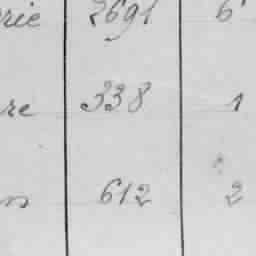 rie 2691 6
re 338 1
n 612 2